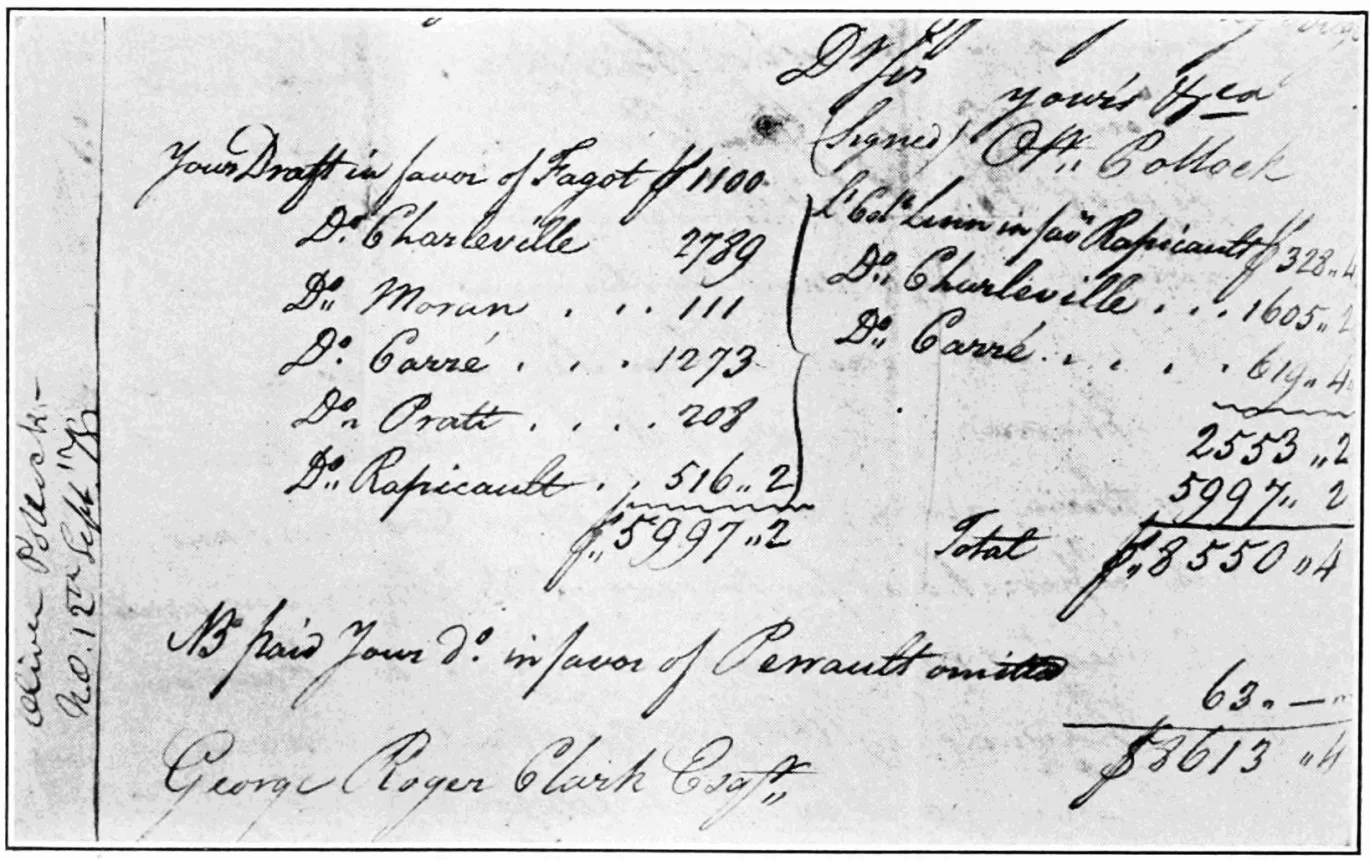 Dr Sir
yours &ca
(Signed) Olr. Pollock
Your Draft in favor of Fagot $ 1100
Do. Charleville 2789
Do. Moran . . . 111
Do. Carré . . . 1273
Do. Pratt . . . . 208
Do. Rapicault . . 516 " 2
$ " 5997 " 2
Lt Col. Linn in favr Rapicault $ 328 " 4
Do. Charleville . . . 1605 " 2
Do. Carré . . . . . 619 " 4
2553 " 2
5997 " 2
Total $ " 8550 " 4
NB paid Your do. in favor of Perrault omitted 63 " — "
$8613 " 4
George Roger Clark Esqr "
Oliver Pollock —
No. 12th Septr 78